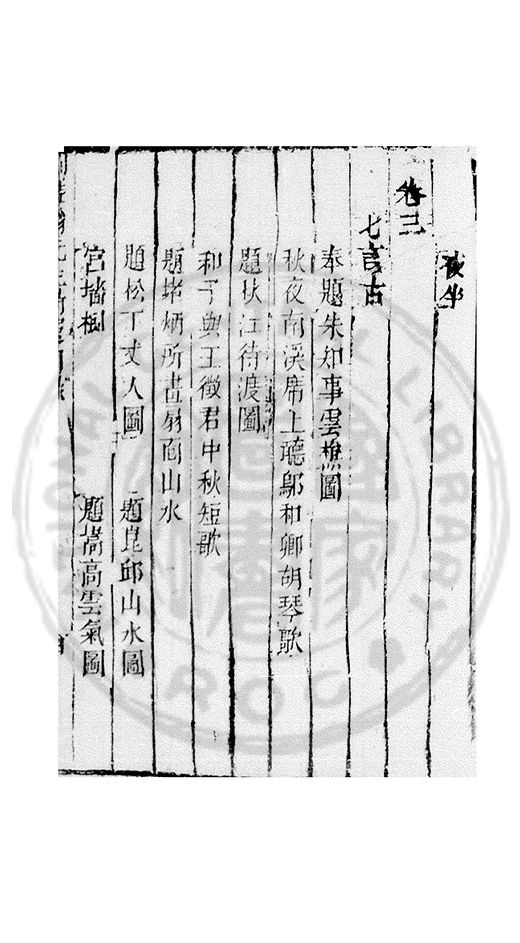 夜坐
卷三
七言古
奉題朱知事雲樵圖
秋夜南溪席上聽鄔和卿胡琴歌
題秋江待渡圖
和子與王徵君中秋短歌
題堵炳所畫扇面山水
題松下丈人圖 題崑邱山水圖
宮墻樹 題嵩高雲氣圖
LIBRARY
ROC